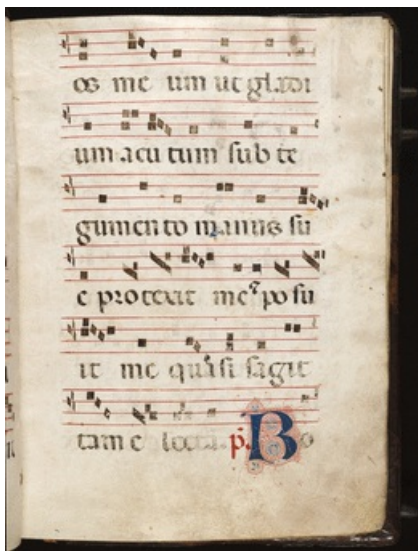 os me um ut gladi
um acu tum sub te
gumento manus su
e protexit me⁊ po su
it me quasi sagit
tam e lecta. p̃. Bo